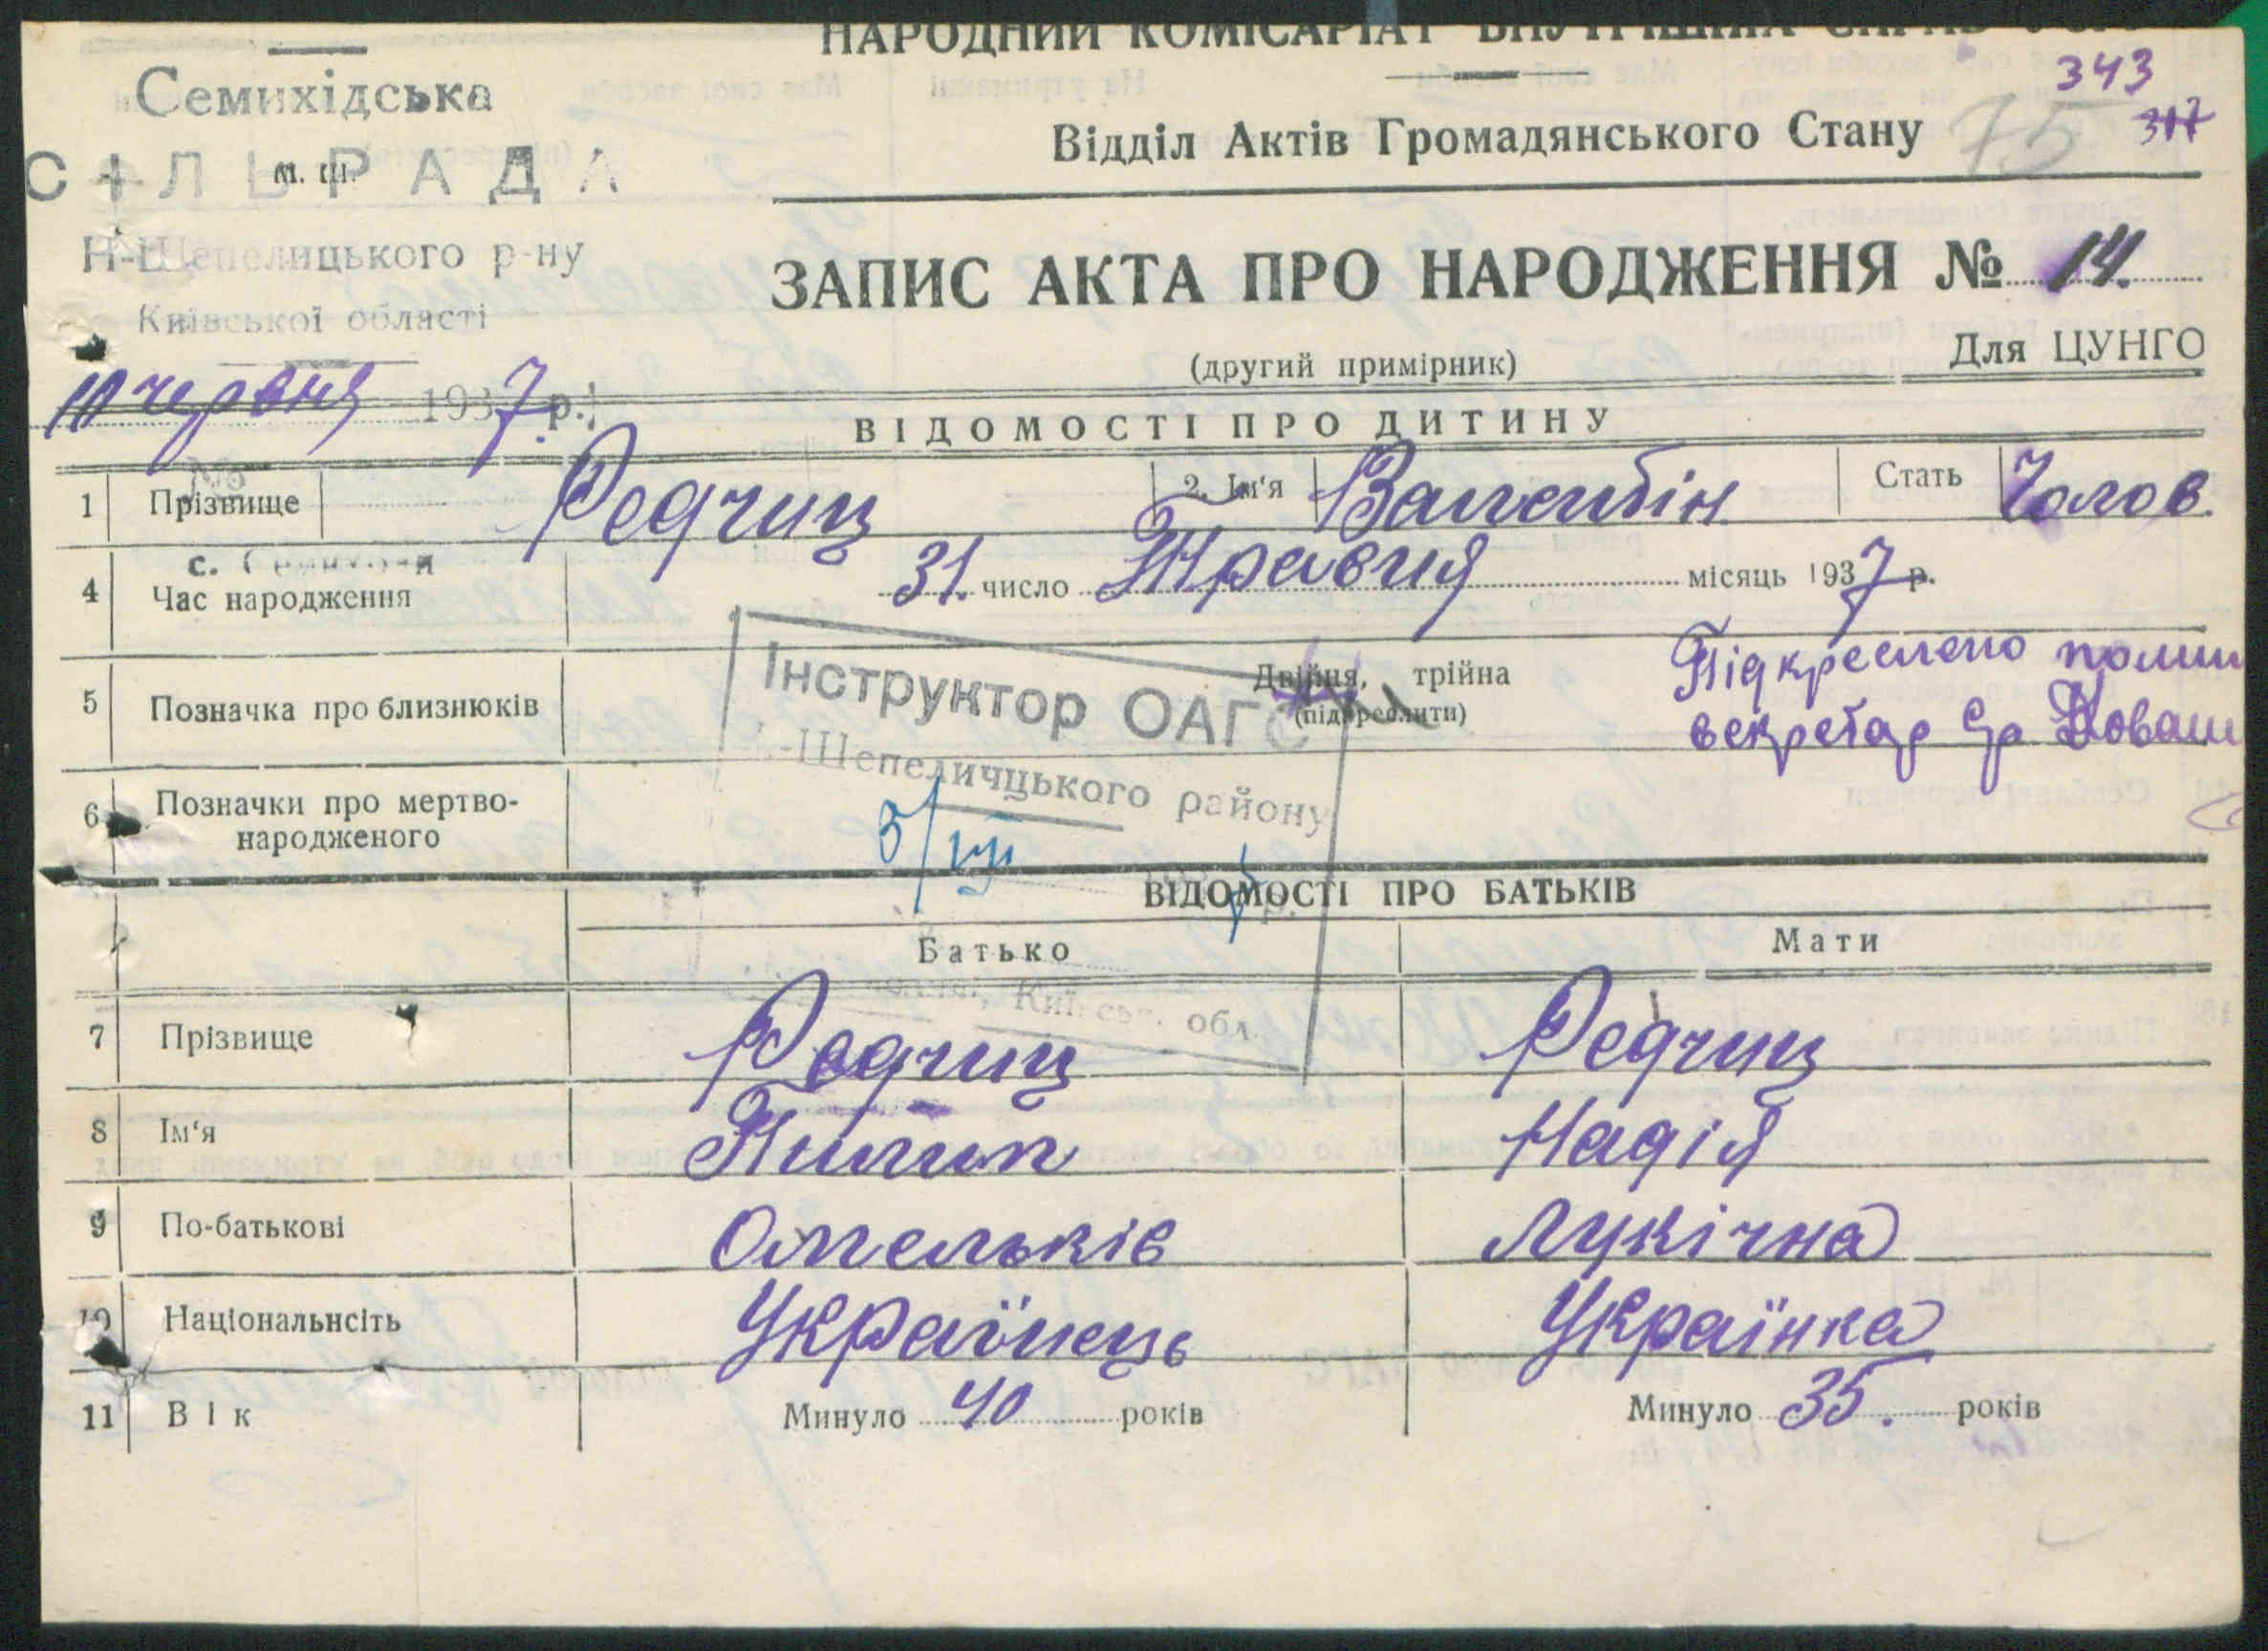 НАРОДНИЙ КОМІСАРІАТ ВНУТРІШНІХ СПРАВ
343
317
75
Семихідська
м. ш.
СІЛЬРАДА
Н-Шепелицького р-ну
Київської області
10 червня 1937 р.
№
Відділ Актів Громадянського Стану
ЗАПИС АКТА ПРО НАРОДЖЕННЯ № 14.
(другий примірник)
Для ЦУНГО
ВІДОМОСТІ ПРО ДИТИНУ
1 Прізвище Редчиц 2. Ім'я Валентін Стать Чолов.
с.
4 Час народження 31. число Травня місяць 1937 р.
5 Позначка про близнюків Двійня, трійна
(підкреслити)
Підкреслено
секретар
Інструктор ОАГС
-Шепеличцького району
3/VII
р.
обл.
6 Позначки про мертво-
народженого
ВІДОМОСТІ ПРО БАТЬКІВ
Батько Мати
7 Прізвище Редчиц Редчиц
8 Ім'я Пилип Надія
9 По-батькові Омельків Лукічна
10 Національнсіть Українець Українка
11 Вік Минуло 40 років Минуло 35. років